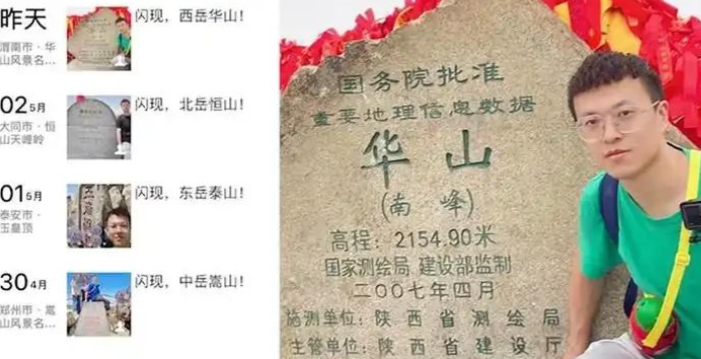 昨天
渭南市·华
山风景名...
闪现，西岳华山！
02 5月
大同市·恒
山天峰岭
闪现，北岳恒山！
01 5月
泰安市·
玉皇顶
闪现，东岳泰山！
30 4月
郑州市·嵩
山风景名...
闪现，中岳嵩山！
国务院批准
重要地理信息数据
华山
（南峰）
高程：2154.90米
国家测绘局 建设部监制
二〇〇七年四月
施测单位：陕西省测绘局
主管单位：陕西省建设厅